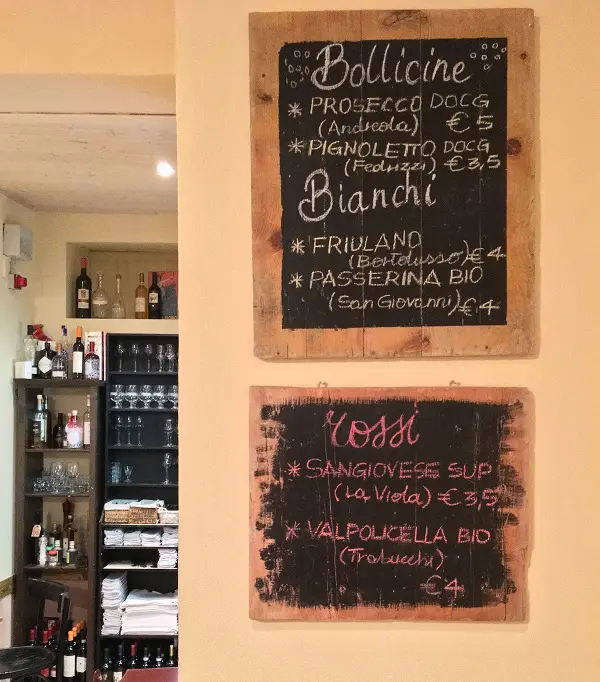 Bollicine
* PROSECCO DOCG
(Andreola) € 5
* PIGNOLETTO DOCG
(Fedrizzi) € 3,5
Bianchi
* FRIULANO
(Bortolusso) € 4
* PASSERINA BIO
(San Giovanni) € 4
rossi
* SANGIOVESE SUP
(La Viola) € 3,5
* VALPOLICELLA BIO
(Trabucchi)
€ 4